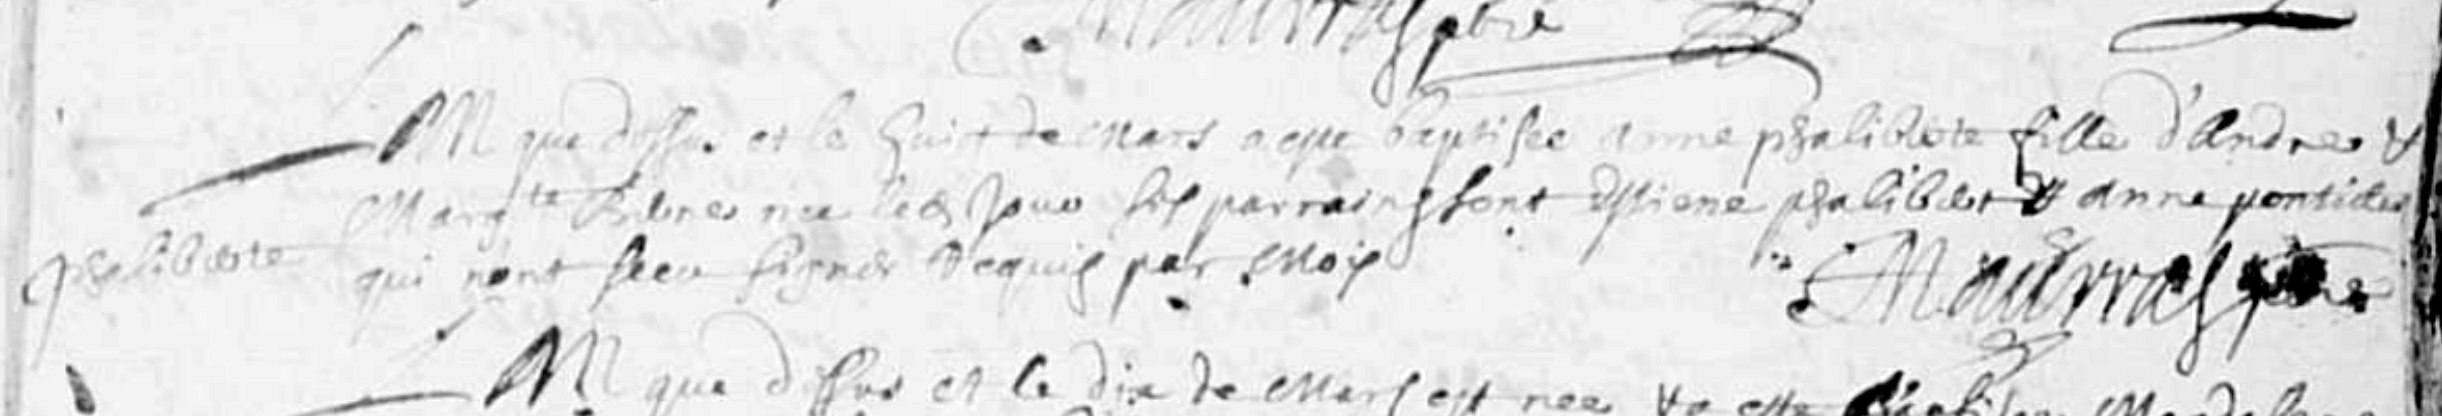 Maurras pbre
M que dessus et le huict de Mars a este baptisee Anne phalibote fille d'Andre &
Marg.te nee led. Jour ses parrains sont Estiene phalibot & Anne
phalibote
qui nont sceu signer Requis par Moy
Maurras pbre
M que dessus et le dix de Mars est nee & a este